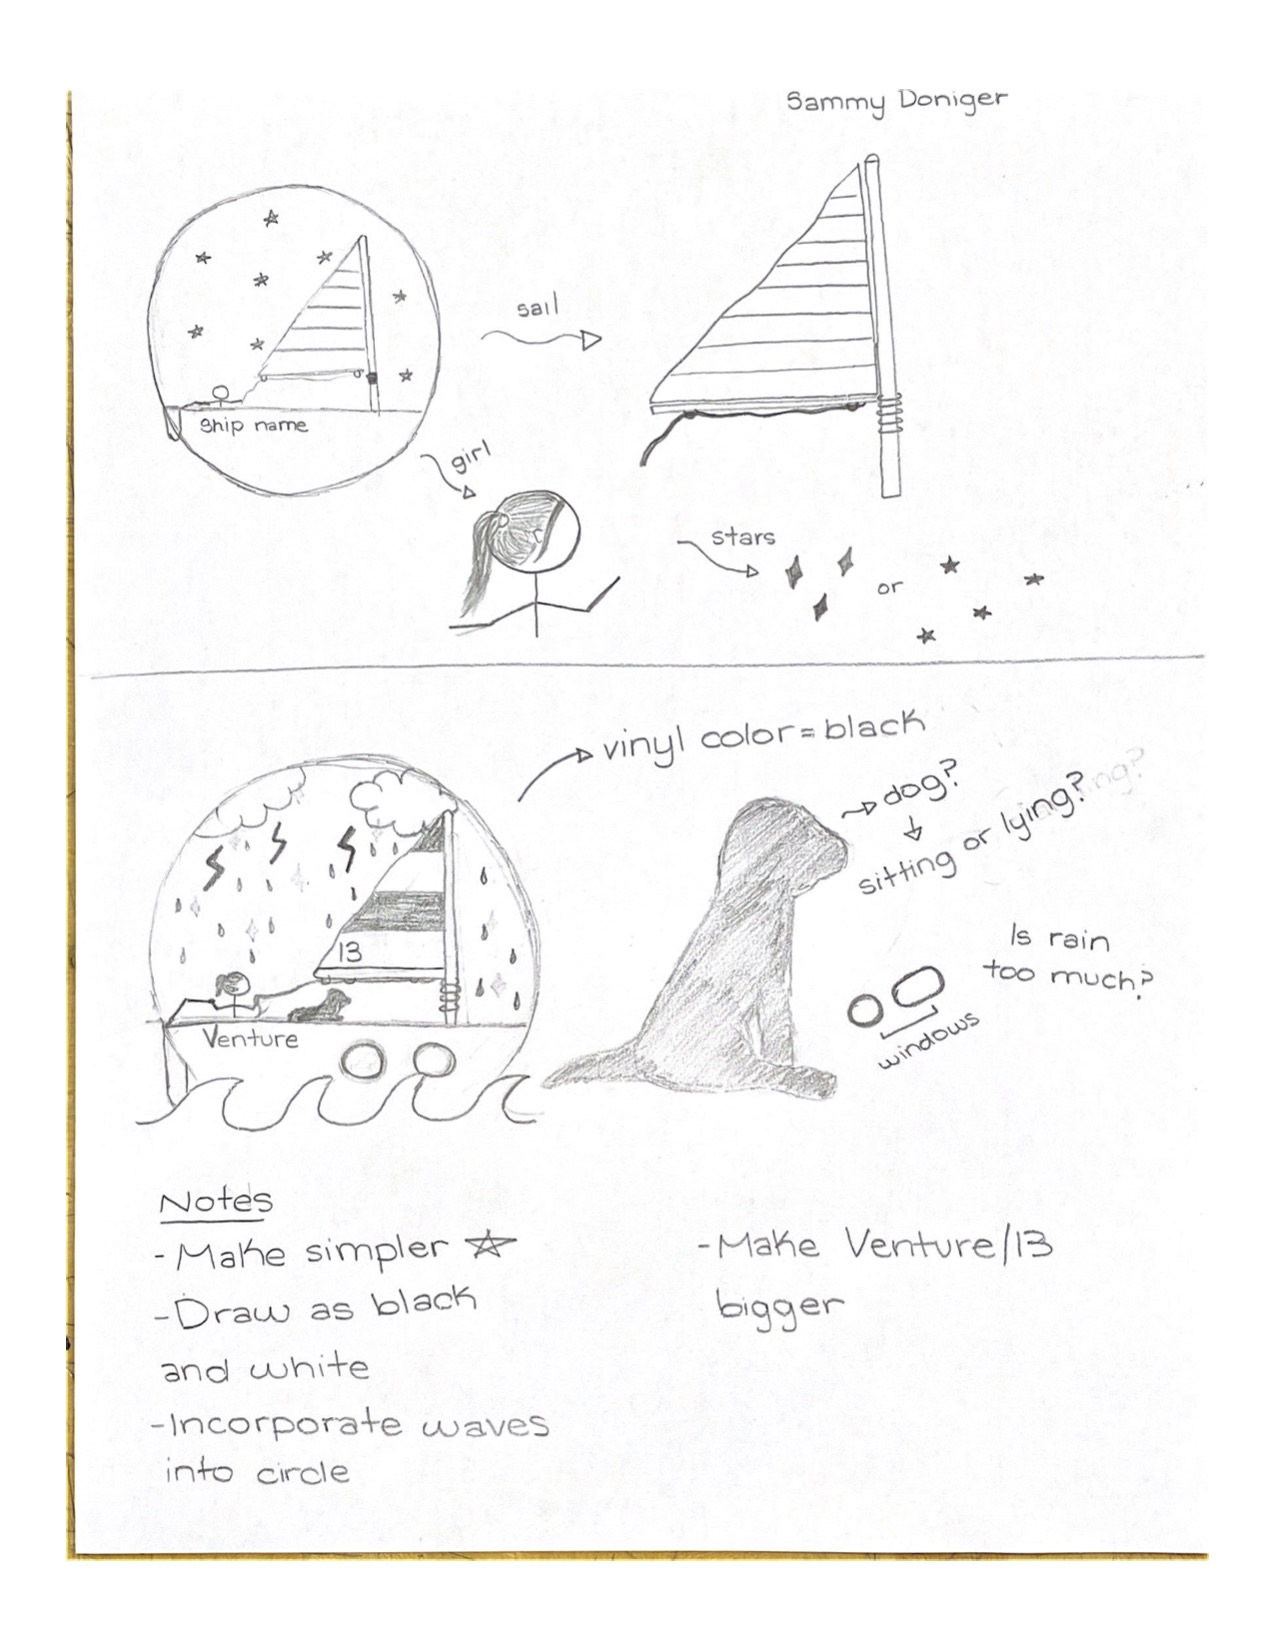 Sammy Doniger
sail
Ship name
girl
stars
or
vinyl color = black
dog?
sitting or lying?
13
Is rain
too much?
windows
Venture
Notes
- Make simpler
- Draw as black
and white
- Incorporate waves
into circle
- Make Venture/13
bigger